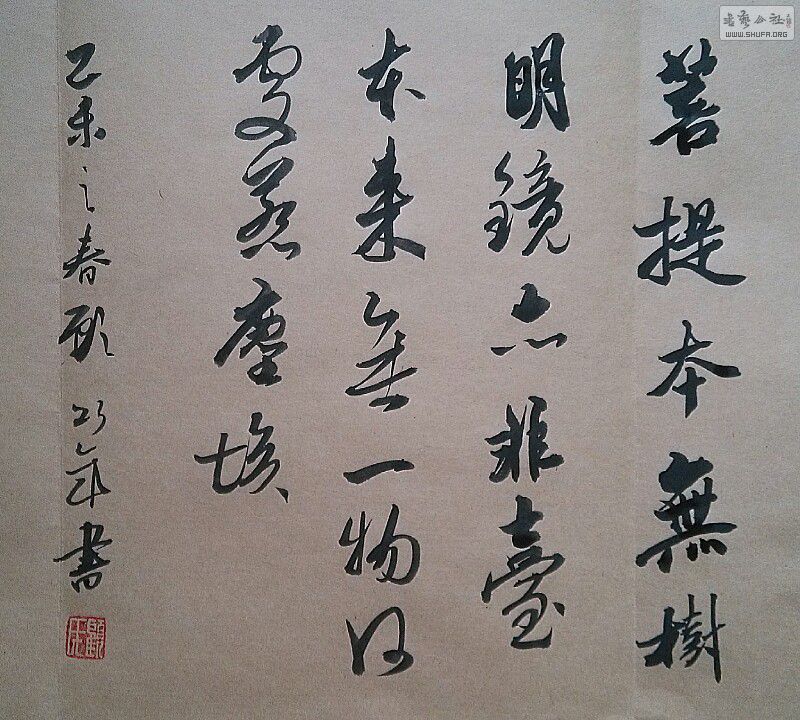 菩提本無樹
明鏡亦非臺
本来無一物何
處惹塵埃
乙未之春
年書
WWW.SHUFA.ORG